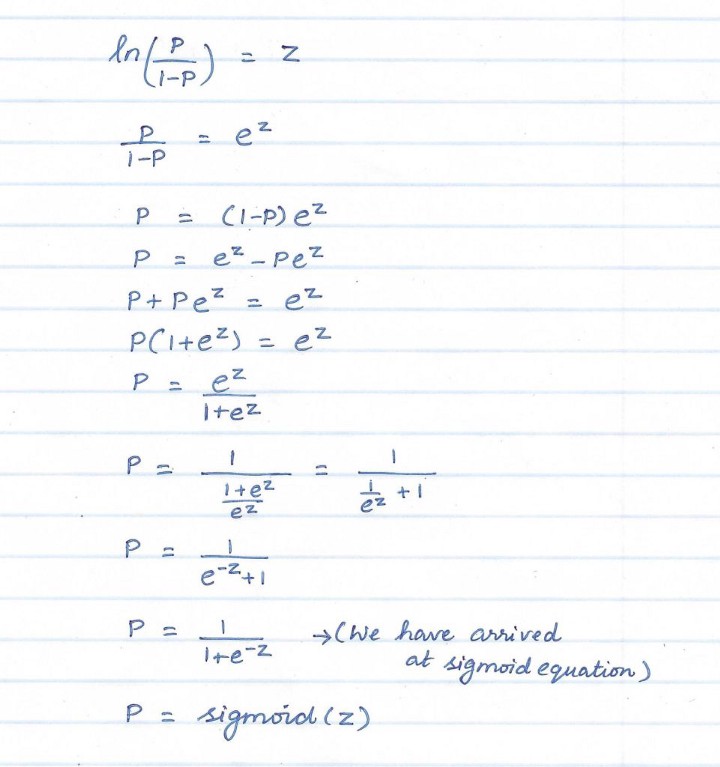 ln(P/(1-P)) = z
P/(1-P) = e^z
P = (1-P)e^z
P = e^z - Pe^z
P + Pe^z = e^z
P(1+e^z) = e^z
P = e^z/(1+e^z)
P = 1/((1+e^z)/e^z) = 1/(1/e^z + 1)
P = 1/(e^-z + 1)
P = 1/(1+e^-z) → (We have arrived
at sigmoid equation)
P = sigmoid(z)